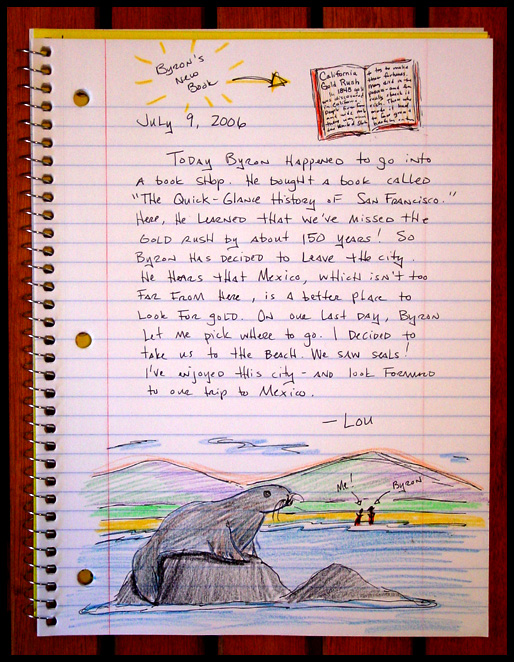 Byron's
New
Book
California
Gold Rush
In 1848 gold
was discovered
in California.
People from
to try to make
their fortunes.
Many died in the
process - and few
really struck it
rich.
July 9, 2006
Today Byron Happened to go into
a book shop. He bought a book called
"The Quick-Glance History of San Francisco."
Here, He learned that we've missed the
Gold Rush by about 150 years! So
Byron has decided to leave the city.
He Hears that Mexico, which isn't too
far from Here, is a better place to
look for gold. On our last day, Byron
let me pick where to go. I decided to
take us to the Beach. We saw seals!
I've enjoyed this city - and look forward
to our trip to Mexico.
— Lou
Me!
Byron